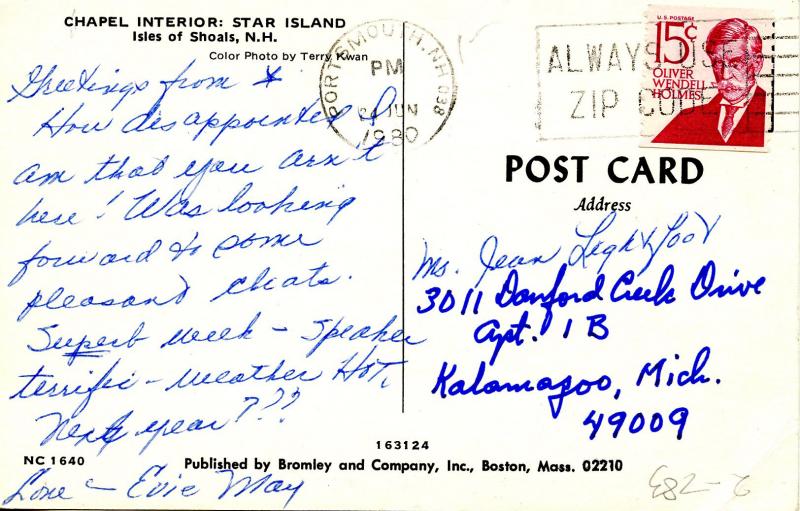 CHAPEL INTERIOR: STAR ISLAND
Isles of Shoals, N.H.
Color Photo by Terry Kwan
Greetings from *
How disappointed I
am that you arn't
here! Was looking
forward to some
pleasant chats.
Superb week - Speaker
terrific - weather Hot,
Next year???
Love - Evie May
NC 1640
163124
Published by Bromley and Company, Inc., Boston, Mass. 02210
PORTSMOUTH, NH 038
PM
24 JUN
1980
ALWAYS USE
ZIP CODE
U.S. POSTAGE
15¢
OLIVER
WENDELL
HOLMES
POST CARD
Address
Ms. Jean Lightfoot
3011 Danford Creek Drive
Apt. 1 B
Kalamazoo, Mich.
49009
E82-6